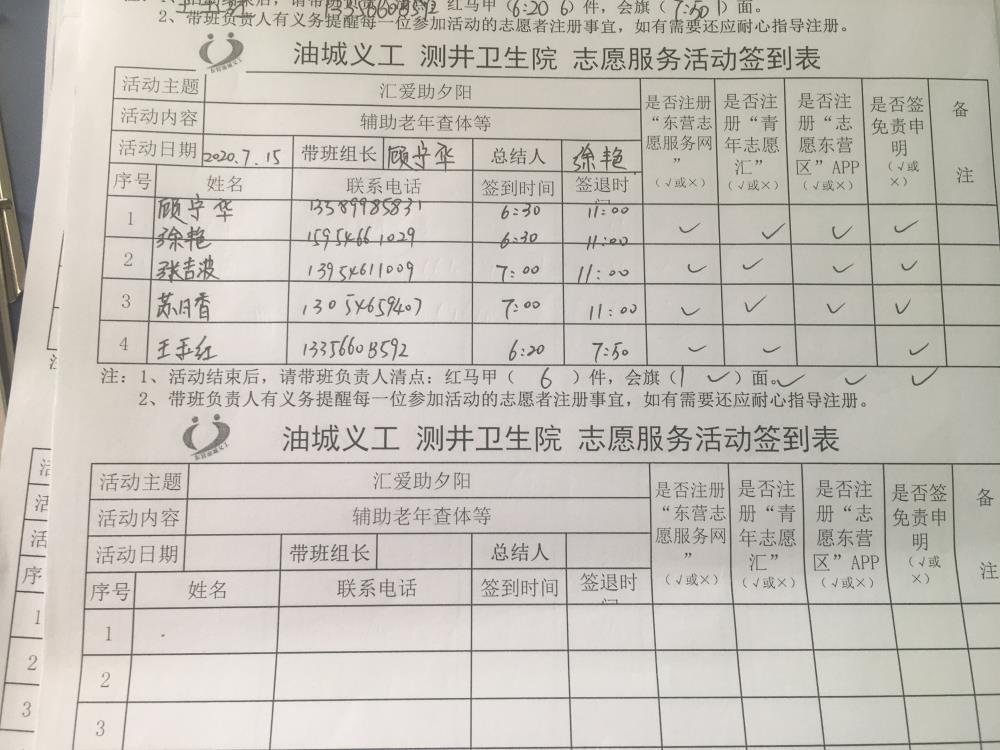 红马甲（6:20 6）件，会旗（7:50 1）面。
2、带班负责人有义务提醒每一位参加活动的志愿者注册事宜，如有需要还应耐心指导注册。
油城义工 测井卫生院 志愿服务活动签到表
活动主题 汇爱助夕阳 是否注册“东营志愿服务网”（√或×） 是否注册“青年志愿汇”（√或×） 是否注册“志愿东营区”APP（√或×） 是否签免责申明（√或×） 备注
活动内容 辅助老年查体等
活动日期 2020.7.15 带班组长 顾宁华 总结人 徐艳
序号 姓名 联系电话 签到时间 签退时间
1 顾宁华 13589985831 6:30 11:00 ✓ ✓ ✓ ✓
徐艳 15954661029 6:30 11:00
2 张吉波 13954611009 7:00 11:00 ✓ ✓ ✓ ✓
3 苏月香 13054659407 7:00 11:00 ✓ ✓ ✓ ✓
4 王玉红 13356608592 6:20 7:50 ✓ ✓ ✓
注：1、活动结束后，请带班负责人清点：红马甲（ 6 ）件，会旗（1 ✓）面。✓ ✓ ✓
2、带班负责人有义务提醒每一位参加活动的志愿者注册事宜，如有需要还应耐心指导注册。
油城义工 测井卫生院 志愿服务活动签到表
活动主题 汇爱助夕阳 是否注册“东营志愿服务网”（√或×） 是否注册“青年志愿汇”（√或×） 是否注册“志愿东营区”APP（√或×） 是否签免责申明（√或×） 备注
活动内容 辅助老年查体等
活动日期 带班组长 总结人
序号 姓名 联系电话 签到时间 签退时
1
2
3